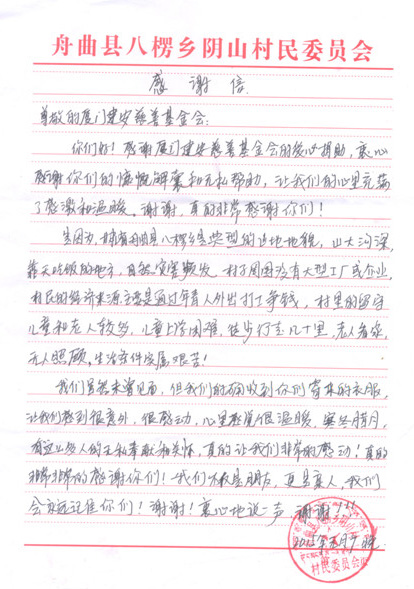 舟曲县八楞乡阴山村民委员会
感谢信
尊敬的厦门建安慈善基金会:
你们好!感谢厦门建安慈善基金会的爱心捐助,衷心
感谢你们的慷慨解囊和无私帮助,让我们的心里充满
了感激和温暖。谢谢,真的非常感谢你们!
舟曲县八楞乡是典型的山地地貌,山大沟深,
靠天吃饭的地方,自然灾害频发 村子周围没有大型工厂或企业,
村民的经济来源主要是通过年青人外出打工争钱,村里的留守
儿童和老人较多,儿童上学困难,徒步行走几十里,老人看病
无人照顾,生活条件实属艰苦!
我们虽然未曾见面,但我们的确收到你们寄来的衣服,
让我们感到很意外,很感动,心里感觉很温暖,寒冬腊月,
有这么多人的无私奉献和关怀,真的让我们非常的感动!真的
非常非常的感谢你们!我们不仅是朋友,更是亲人 我们
会永远记住你们!谢谢!衷心地说一声 谢谢!!!
村民委员会